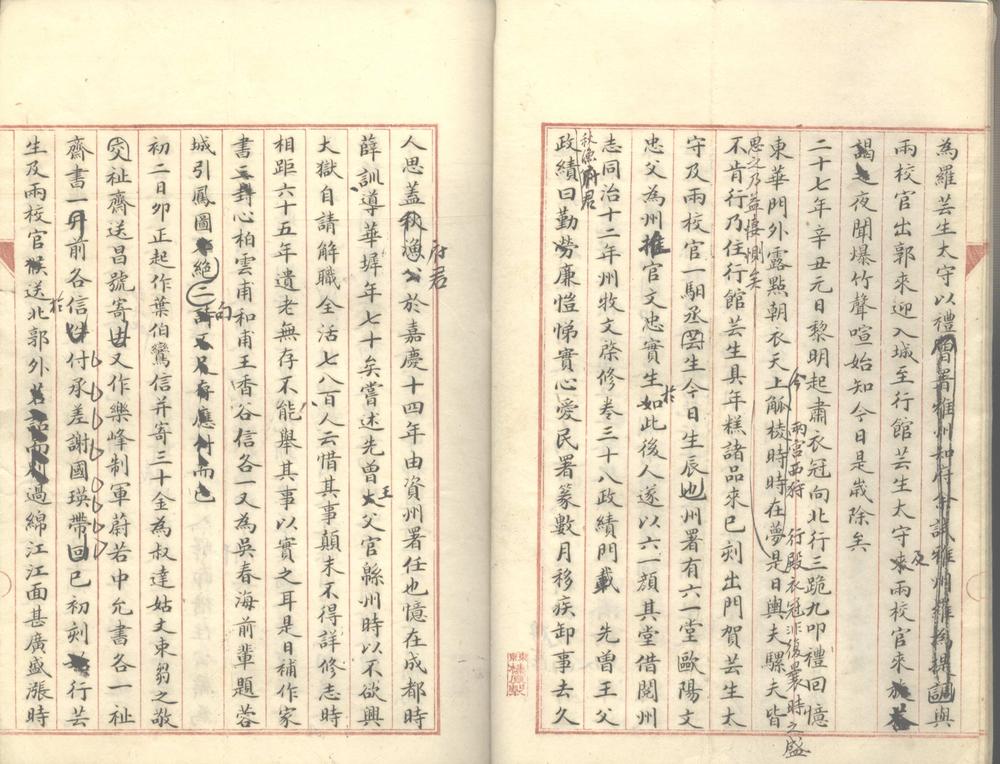 為羅芸生太守以禮曾署雅州知府余試雅州羅為提調與
兩校官出郭來迎入城至行館芸生太守來及兩校官來
謁夜聞爆竹聲喧始知今日是歲除矣
二十七年辛丑元日黎明起肅衣冠向北行三跪九叩禮回憶
東華門外露點朝衣天上觚棱時時在夢是日輿夫騾夫皆
今兩宮西狩 行殿衣冠非復曩時之盛
思之乃益悽惻矣
不肯行乃住行館芸生具年糕諸品來巳刻出門賀芸生太
守及兩校官一駟丞芸生今日生辰也州署有六一堂歐陽文
忠父為州推官文忠實生於此後人遂以六一顏其堂借閱州
志同治十二年州牧文棨修卷三十八政績門載 先曾王父
秋漁府君
政績曰勤勞廉愷悌實心愛民署篆數月移疾卸事去久
人思蓋秋漁府君於嘉慶十四年由資州署任也憶在成都時
薛訓導華墀年七十矣嘗述先曾王父官緜州時以不欲興
大獄自請解職全活七八百人云惜其事顛末不得詳修志時
相距六十五年遺老無存不能舉其事以實之耳是日補作家
書三封心柏雲甫和甫王香谷信各一又為吳春海前輩題蓉
城引鳳圖二絕句
初二日卯正起作葉伯鸞信并寄三十金為叔達姑丈東芻之敬
交祉齋送昌號寄由又作樂峰制軍蔚若中允書各一祉
齋書一并前各信付承差謝國瑛帶回巳初刻行芸
生及兩校官候送於北郭外過綿江江面甚廣盛漲時